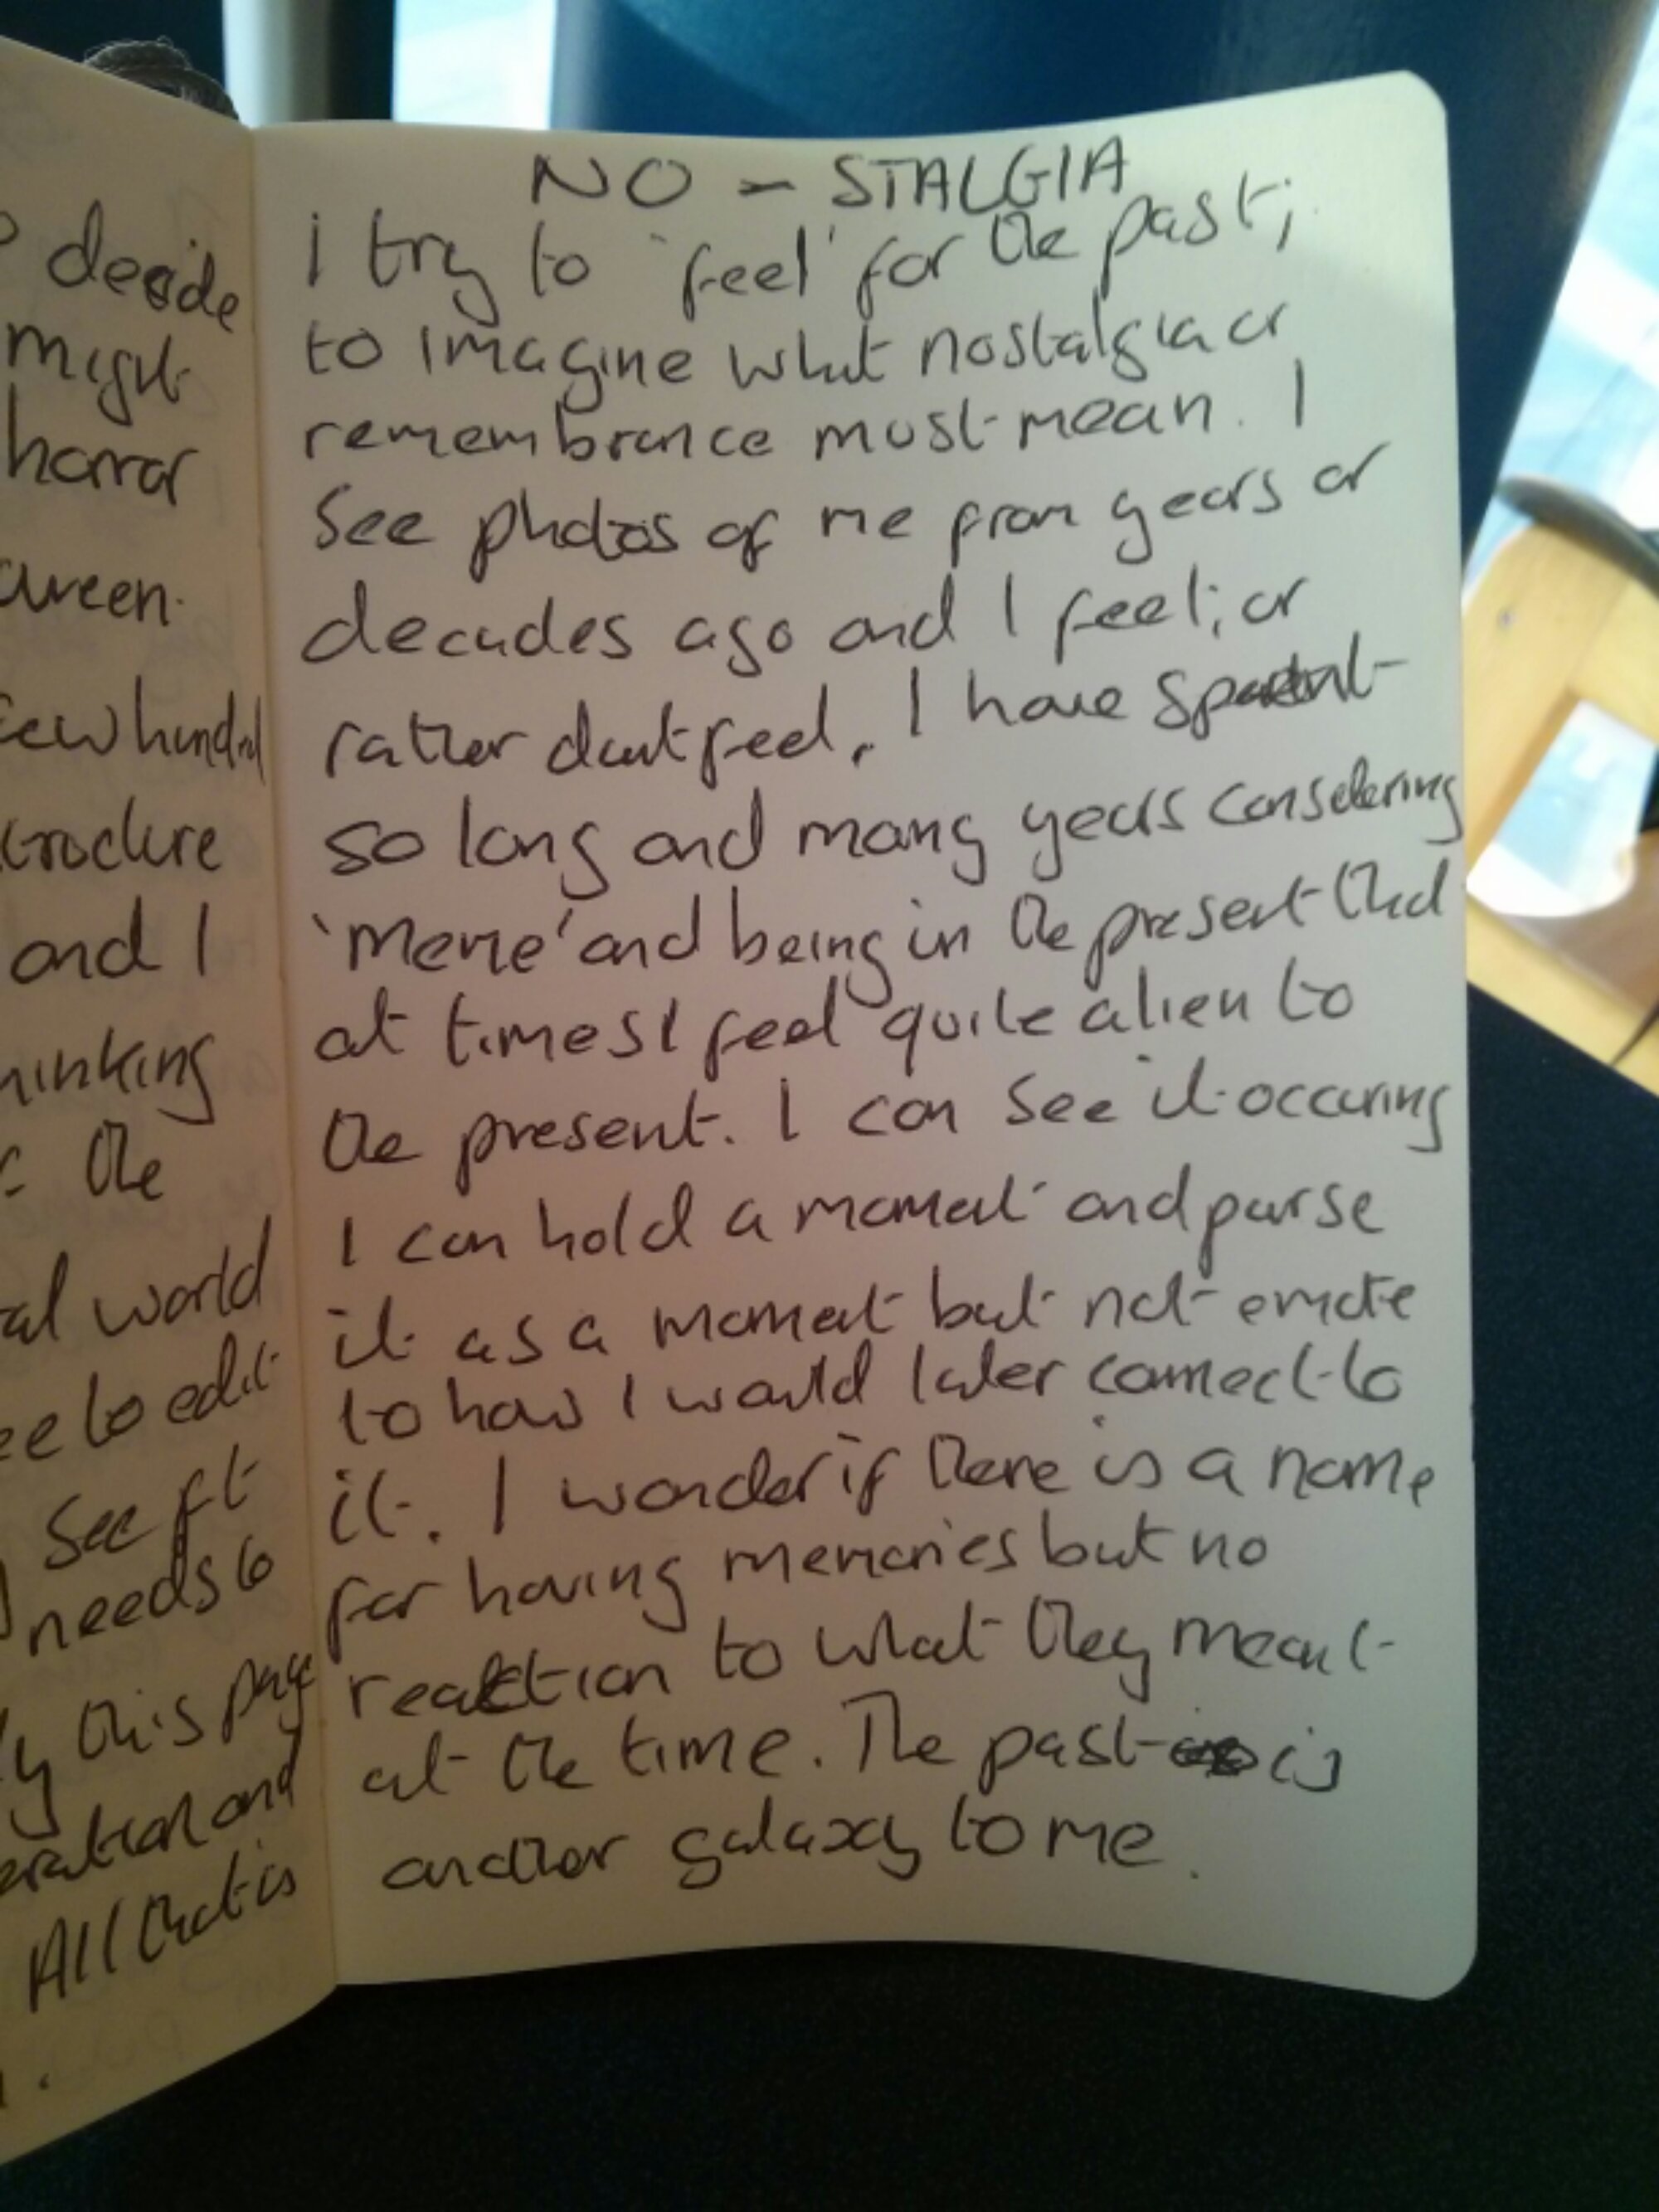 decide
might
horror
ween.
few hundred
and I
thinking
the
world
to edit
See ft
needs to
this page
and
All that is
NO - STALGIA
I try to 'feel' for the past;
to imagine what nostalgia or
remembrance must mean. I
see photos of me from years or
decades ago and I feel; or
rather don't feel. I have spent
so long and many years considering
'Meme' and being in the present that
at times I feel quite alien to
the present. I can see it occuring
I can hold a moment and parse
it as a moment but not emote
to how I would later connect to
it. I wonder if there is a name
for having memories but no
reaction to what they meant
at the time. The past is
another galaxy to me.